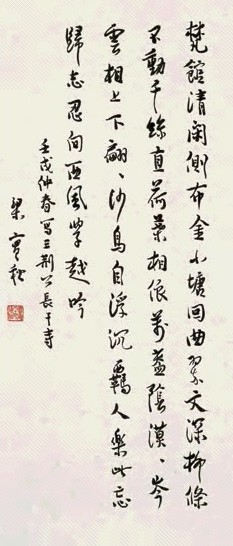 梵館清閑側布金小塘回曲翠文深柳條
不動千絲直荷葉相依萬蓋陰漠、岑
雲相上下翩、沙鳥自浮沉羈人樂此忘
歸志忍向西風学越吟
壬戌仲春写王荊公長干寺
梁